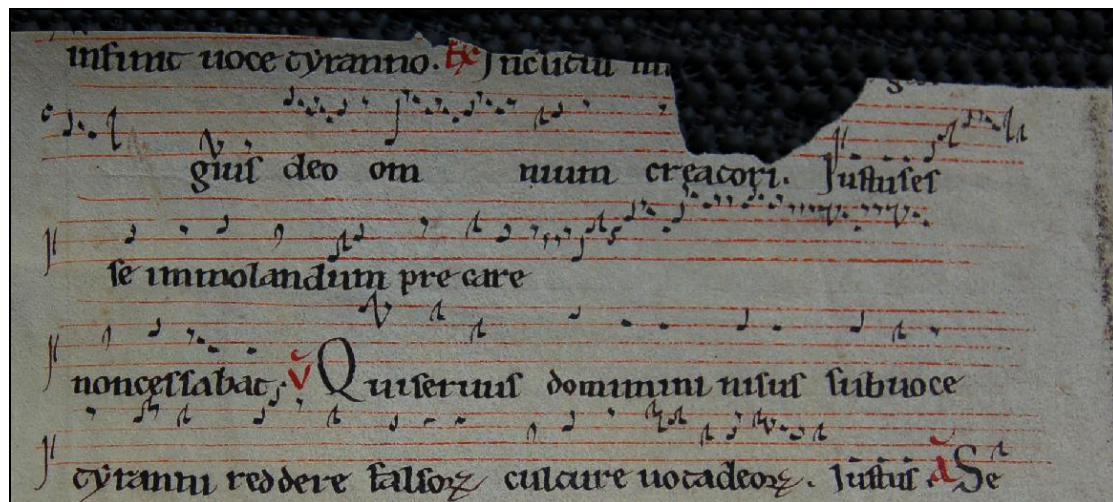 uoce tyranno.
gius deo om nium creatori. Iustus es
se immolandum pre care
non cessabat. V Qui seruus domimini nisus sub uoce
tyranni reddere falsoꝝ culture uota deoꝝ. Iustus. A Se